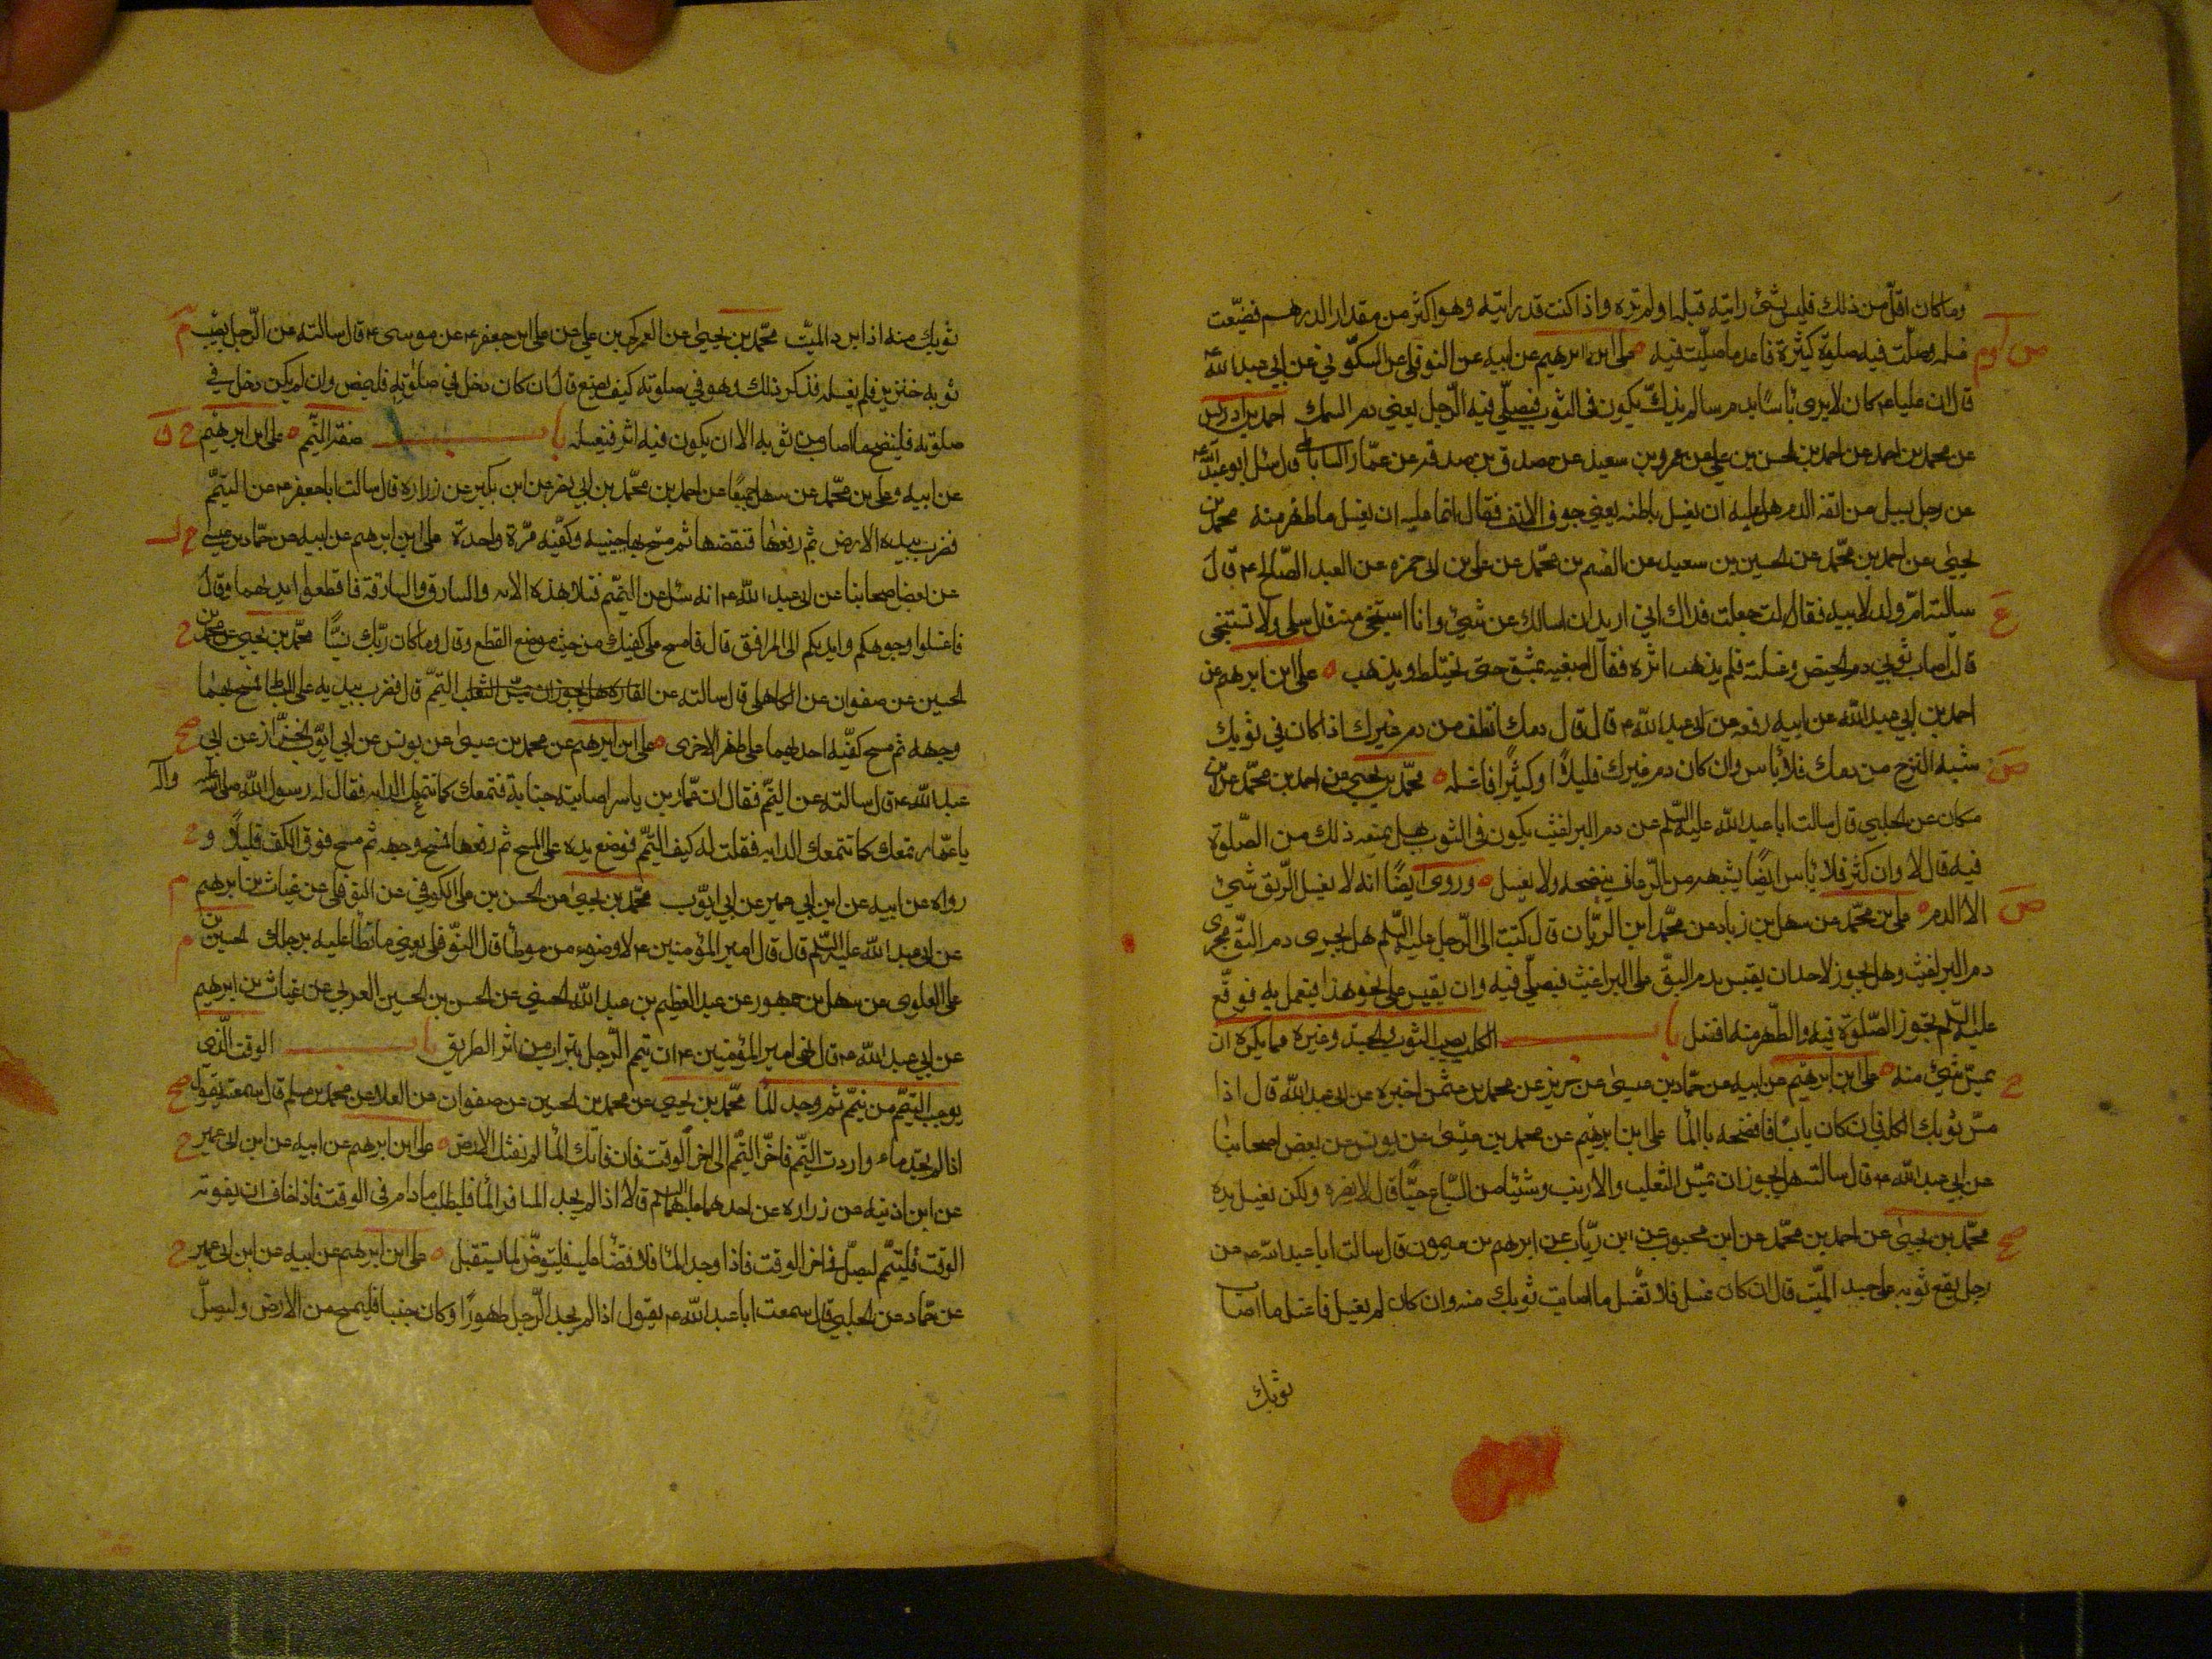 وما كان اقلّ من ذلك فليس بشئ رايته قبل اولم تره واذا كنت قد رايته وهو اكثر من مقدار الدرهم فضيّعت
غسله وصلّيت فيه صلوة كثيرة فاعد ما صلّيت فيه على ابن ابرهيم عن ابيه عن النوفلي عن السكّوني عن ابي عبد الله
قال ان عليا ع كان لا يرى بأسًا بدم ما لم يذكّ يكون في الثوب فيصلّي فيه الرّجل يعني دم السمك احمد بن ادريس
عن محمد بن احمد عن احمد بن الحسن بن علي عن عمرو بن سعيد عن مصدق بن صدقه عن عمّار الساباطي قال سئل ابو عبد الله
عن رجل يسيل من انفه الدم هل عليه ان يغسل باطنه يعني جوف الانف فقال انما عليه ان يغسل ما ظهر منه محمد بن
يحيى عن احمد بن محمّد عن الحسين بن سعيد عن القسم بن محمّد عن على بن ابى حمزه عن العبد الصّالح ع قال
سالته امّ ولد لابيه فقالت جعلت فداك انى اريد ان اسالك عن شئ وانا استحيى منه قال سلى ولا تستحيى
قالت اصاب ثوبي دم الحيض وغسلته فلم يذهب اثره فقال اصبغيه بمشق حتى يختلط ويذهب على ابن ابرهيم عن
احمد بن ابي عبد الله عن ابيه رفعه عن ابى عبد الله ع قال قال دمك انظف من دم غيرك اذا كان في ثوبك
شبه النزح من دمك فلا بأس وان كان دم غيرك قليلاً او كثيرًا فاغسله محمّد بن يحيى عن احمد بن محمّد عن ابن
مسكان عن الحلبي قال سالت ابا عبد الله عليه السّلم عن دم البراغيث يكون في الثوب هل يمنعه ذلك من الصّلوة
فيه قال لا وان كثر فلا بأس ايضًا بشبهه من الرّعاف ينضحه ولا يغسل وروى ايضًا انه لا يغسل الرّيق شئ
الا الدم على بن محمّد عن سهل بن زياد عن محمّد ابن الريّان قال كتبت الى الرّجل عليه السّلم هل يجرى دم البقّ مجرى
دم البراغيث وهل يجوز لاحد ان يقيس بدم البقّ على البراغيث فيصلّى فيه وان يقيس على نحو هذا فيعمل به فوقّع
عليه السلم تجوز الصّلوة فيه والطّهر منه افضل باب الكلب يصيب الثوب والجسد وغيره مما يكره ان
يمسّ شئ منه على ابن ابرهيم عن ابيه عن حمّاد بن عيسى عن حريز عن محمد بن عمّن اخبره عن ابى عبد الله قال اذا
مسّ ثوبك الكلب فان كان يابسًا فانضحه بالماء على ابن ابرهيم عن محمد بن عيسى عن يونس عن بعض اصحابنا
عن ابي عبد الله ع قال سالته هل يجوز ان يمسّ الثعلب والارنب وشيئا من السّباع حيًّا قال لا يضره ولكن يغسل يده
محمّد بن يحيى عن احمد بن محمّد عن ابن محبوب عن ابن ريّاب عن ابرهيم بن ميمون قال سالت ابا عبد الله ع عن
رجل يقع ثوبه على جسد الميّت قال ان كان غسل فلا تغسل ما اصاب ثوبك منه وان كان لم يغسل فاغسل ما اصاب
ثوبك
ثوبك منه اذا برد الميّت محمّد بن يحيى عن العمركي بن علي عن على ابن جعفر ع عن موسى ع قال سالته عن الرّجل يصيب
ثوبه خنزير فلم يغسله فذكر ذلك وهو في صلوته كيف يصنع قال ان كان دخل في صلوته فليمض وان لم يكن دخل في
صلوته فلينضح ما اصاب من ثوبه الا ان يكون فيه اثر فيغسله باب صفة التيمّم على ابن ابرهيم
عن ابيه وعلى بن محمّد عن سهل جميعًا عن احمد بن محمّد بن ابي نصر عن ابن بكير عن زراره قال سالت ابا جعفر ع عن التيمّم
فضرب بيده الارض ثم رفعها فنفضها ثم مسح بها جبينيه وكفّيه مرّة واحدة على ابن ابرهيم عن ابيه عن حمّاد بن عيسى
عن بعض اصحابنا عن ابى عبد الله ع انه سئل عن التيمّم فتلا هذه الايه والسارق والسارقة فاقطعوا ايديهما وقال
فاغسلوا وجوهكم وايديكم الى المرافق قال فامسح على كفيك من حيث موضع القطع وقال وما كان ربّك نسيًّا محمّد بن يحيى عن محمد بن
الحسين عن صفوان عن الكاهلي قال سالته عن التيمّم قال فضرب بيديه على البساط فمسح بهما
وجهه ثم مسح كفّيه احديهما على ظهر الاخرى على ابن ابرهيم عن محمد بن عيسى عن يونس عن ابي ايّوب الخزّاز عن ابي
عبد الله ع قال سالته عن التيمّم فقال ان عمّار بن ياسر اصابته جنابة فتمعك كما تتمعك الدابه فقال له رسول الله صلى الله عليه وآله
يا عمّار تمعك كما تتمعك الدابه فقلت له كيف التيمّم فوضع يده على المسح ثم رفعها فمسح وجهه ثم مسح فوق الكفّ قليلًا و
رواه عن ابيه عن ابن ابي عمير عن ابي ايّوب محمّد بن يحيى عن الحسن بن على الكوفي عن النوفلي عن غياث بن ابرهيم
عن ابى عبد الله عليه السّلم قال قال امير المؤمنين ع لا وضوء من موطأ قال النوّفلي يعني ما تطأ عليه برجلك الحسين بن
على العلوى عن سهل بن جمهور عن عبد العظيم بن عبد الله الحسني عن الحسن بن الحسين العرني عن غياث بن ابرهيم
عن ابي عبد الله ع قال نهى امير المؤمنين ع ان يتيمّم الرّجل بتراب من اثر الطريق باب الوقت الّذى
يوجب التيمّم ومن تيمّم ثم وجد الماء محمّد بن يحيى عن محمد بن الحسين عن صفوان عن العلا عن محمد بن مسلم قال سمعته يقول
اذا لم تجد ماء واردت التيمّم فاخّر التيمّم الى اخر الوقت فان فاتك الماء لم تفتك الارض على ابن ابرهيم عن ابيه عن ابن ابى عمير
عن ابن اذينه عن زراره عن احدهما عليهما السلم قال اذا لم يجد المسافر الماء فليطلب ما دام في الوقت فاذا خاف ان يفوته
الوقت فليتيمّم وليصلّ في اخر الوقت فاذا وجد الماء فلا قضاء عليه وليتوضّ لما يستقبل على ابن ابرهيم عن ابيه عن ابن ابى عمير
عن حمّاد عن الحلبي قال سمعت ابا عبد الله ع يقول اذا لم يجد الرّجل طهورًا وكان جنبا فليمسح من الارض وليصلّ